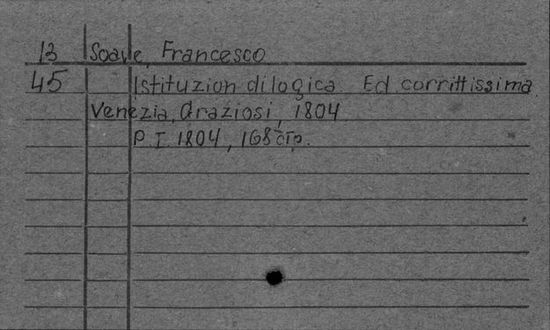 13 Soave, Francesco
45 Istituzion di logica Ed corrittissima.
Venezia, Graziosi, 1804
P. I. 1804, 168 стр.